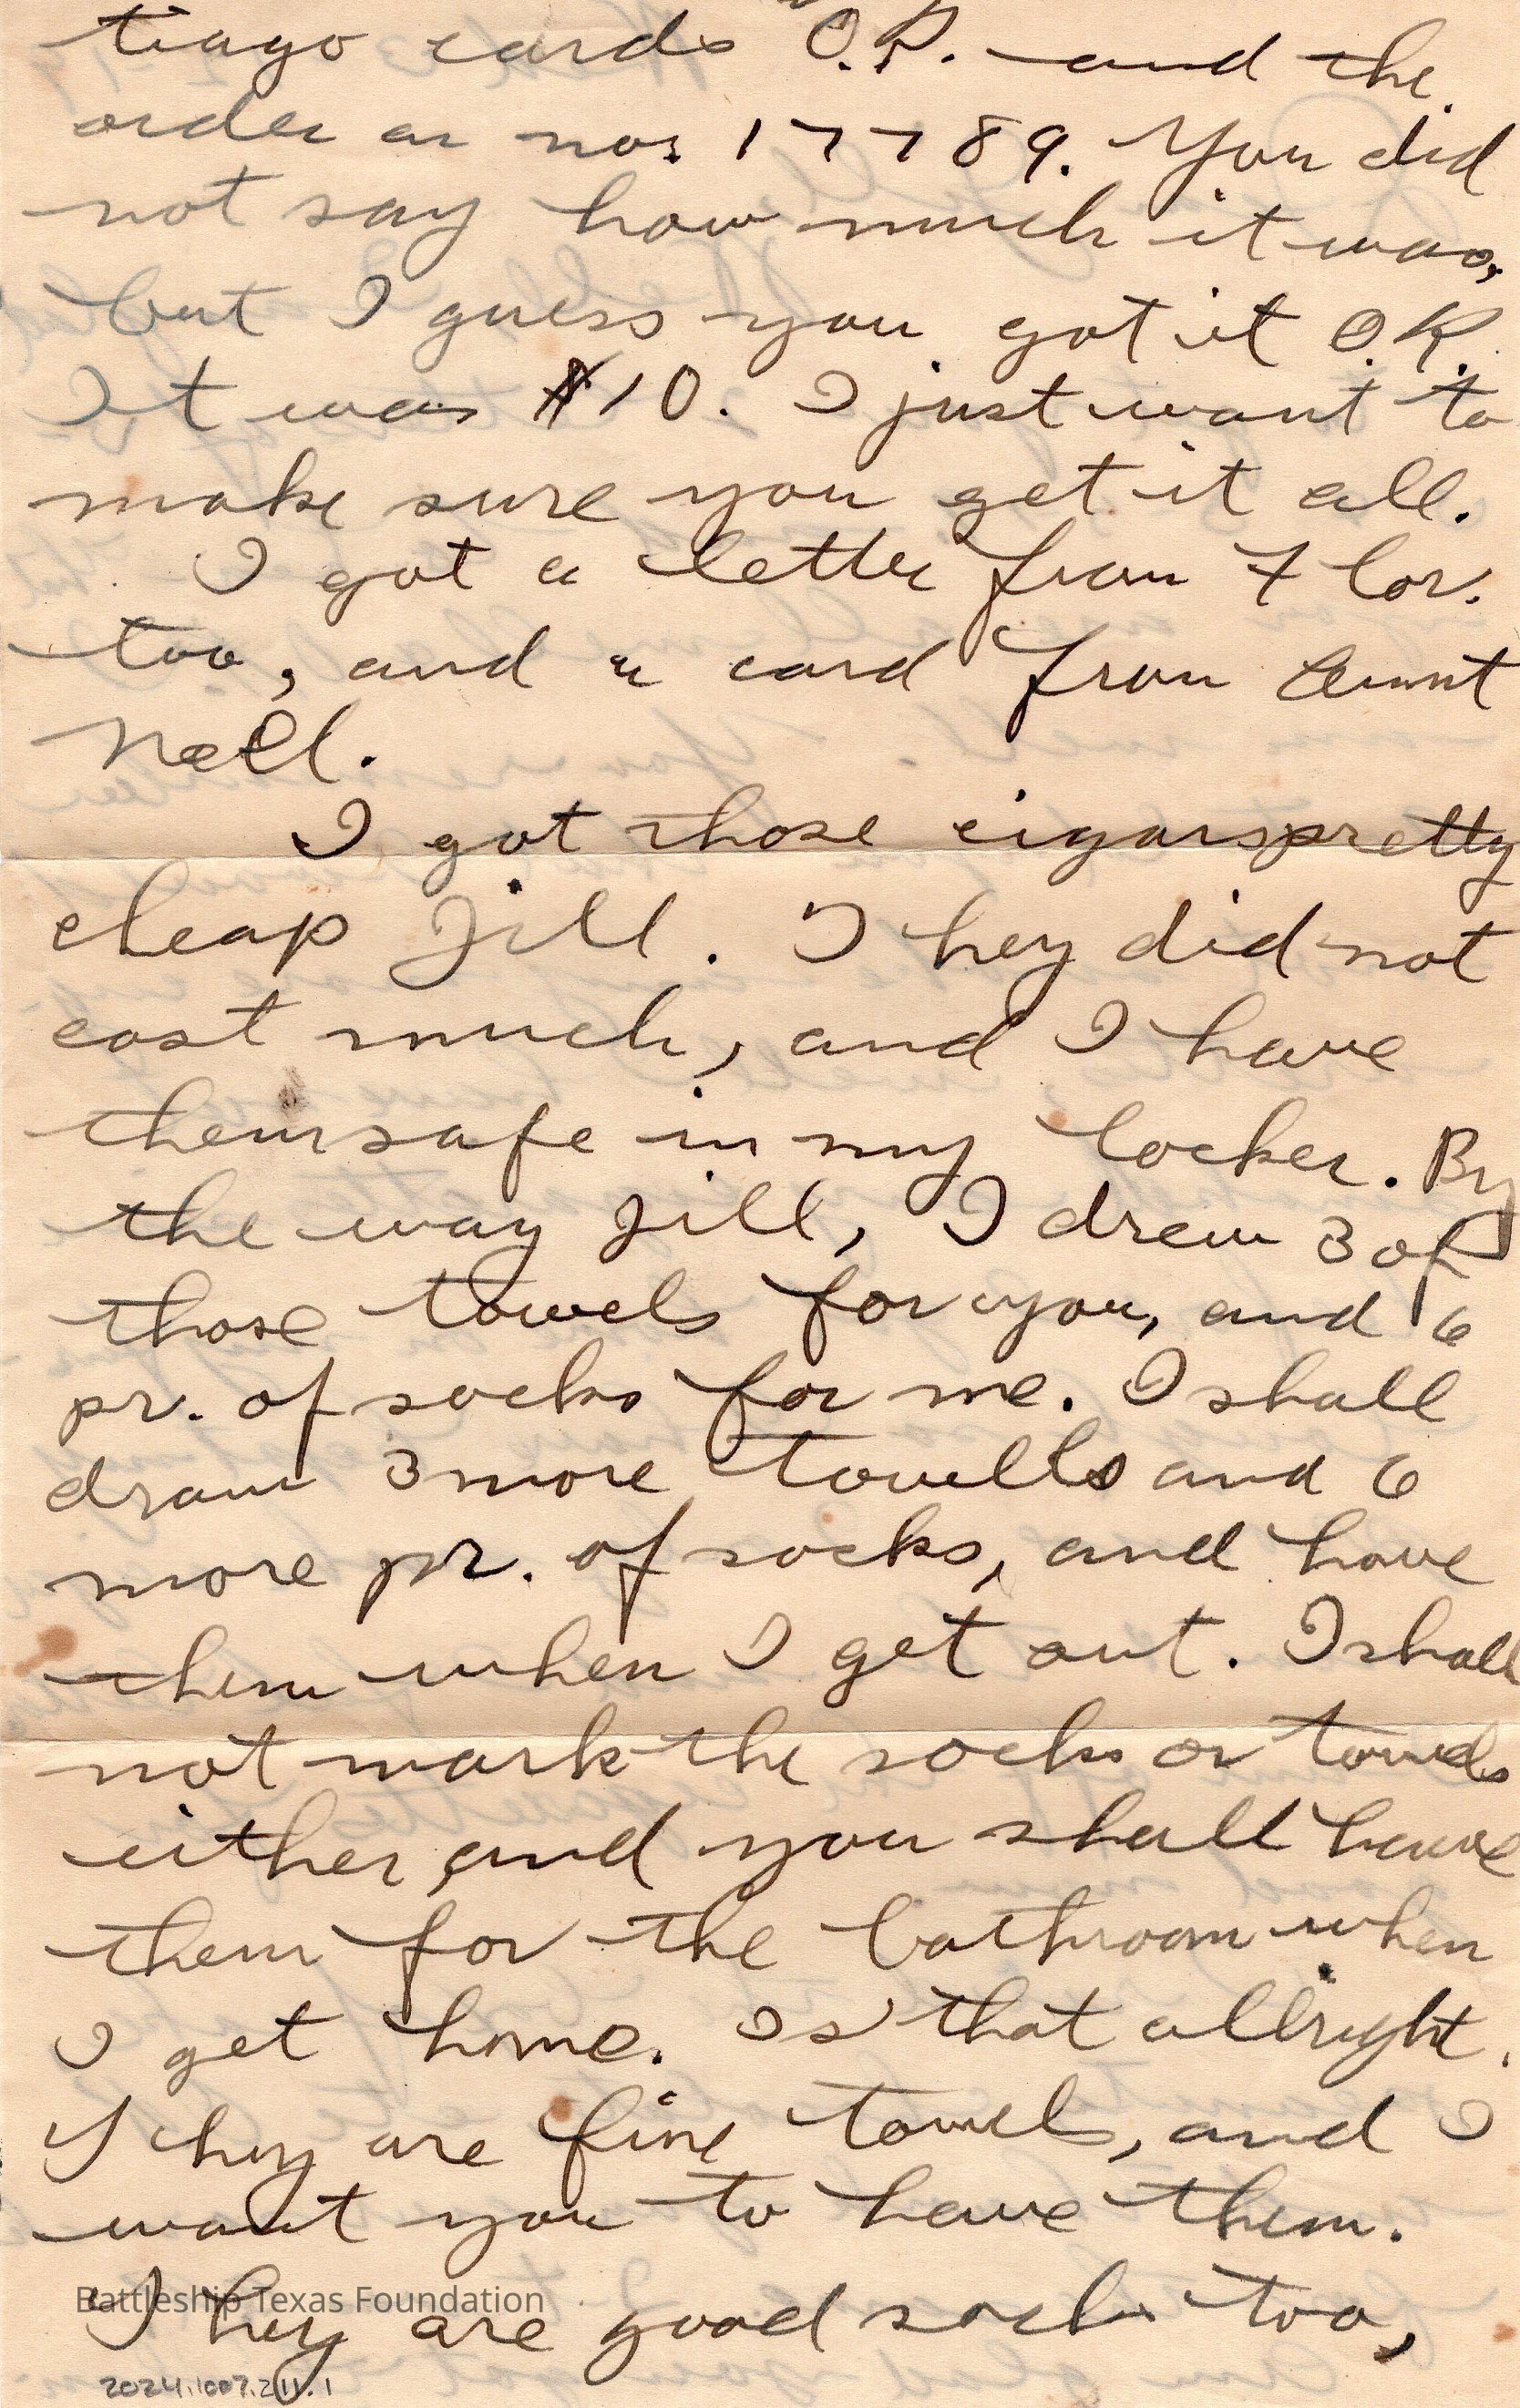 tiago cards O.K. and the
order on no. 17789. You did
not say how much it was,
but I guess you got it O.K.
It was $10. I just want to
make sure you get it all.
I got a letter from Flor.
too, and a card from Aunt
Nell.
I got those cigars pretty
cheap Jill. They did not
cost much, and I have
them safe in my locker. By
the way Jill, I drew 3 of
those towels for you, and 6
pr. of socks for me. I shall
draw 3 more towells and 6
more pr. of socks, and have
them when I get out. I shall
not mark the socks or towels
either, and you shall have
them for the bathroom when
I get home. Is that allright.
They are fine towels, and I
want you to have them.
They are good socks too,
Battleship Texas Foundation
2024.1007.211.1